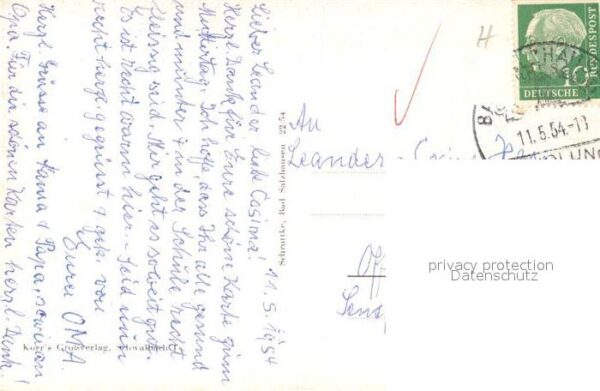 11.5.1954
Lieber Leander, liebe Cosima!
Herzl. Dank für Eure schöne Karte zum
Muttertag. Ich hoffe dass Ihr alle gesund
und munter + in der Schule recht
fleissig seid. Mir geht es soweit gut.
Es ist recht warm hier. Seid nun
recht herzl. gegrüsst + gek. von
Eurer OMA.
Herzl. Grüsse an Mama + Papa, sowie an
Opa. Für die schönen Karten herzl. Dank!
Korr's Großverlag, Schwalbach
Schrottke, Bad Salzhausen 2254
H
An
Leander
DEUTSCHE
BUNDESPOST
10
11.5.54.-18
privacy protection
Datenschutz